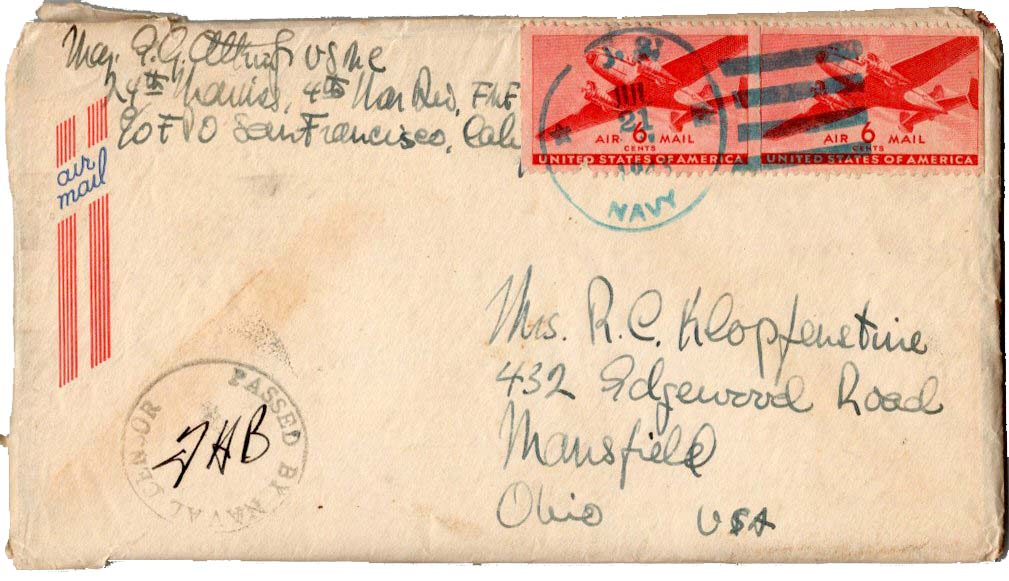 Maj. E.G. USMC
24th Marines, 4th Mar Div, FMF
c/o FPO San Francisco, Calif
air
mail
U.S.
21
NAVY
AIR 6 MAIL
CENTS
UNITED STATES OF AMERICA
AIR 6 MAIL
CENTS
UNITED STATES OF AMERICA
Mrs. R.C. Klopfenstine
432 Edgewood Road
Mansfield
Ohio USA
PASSED BY NAVAL CENSOR